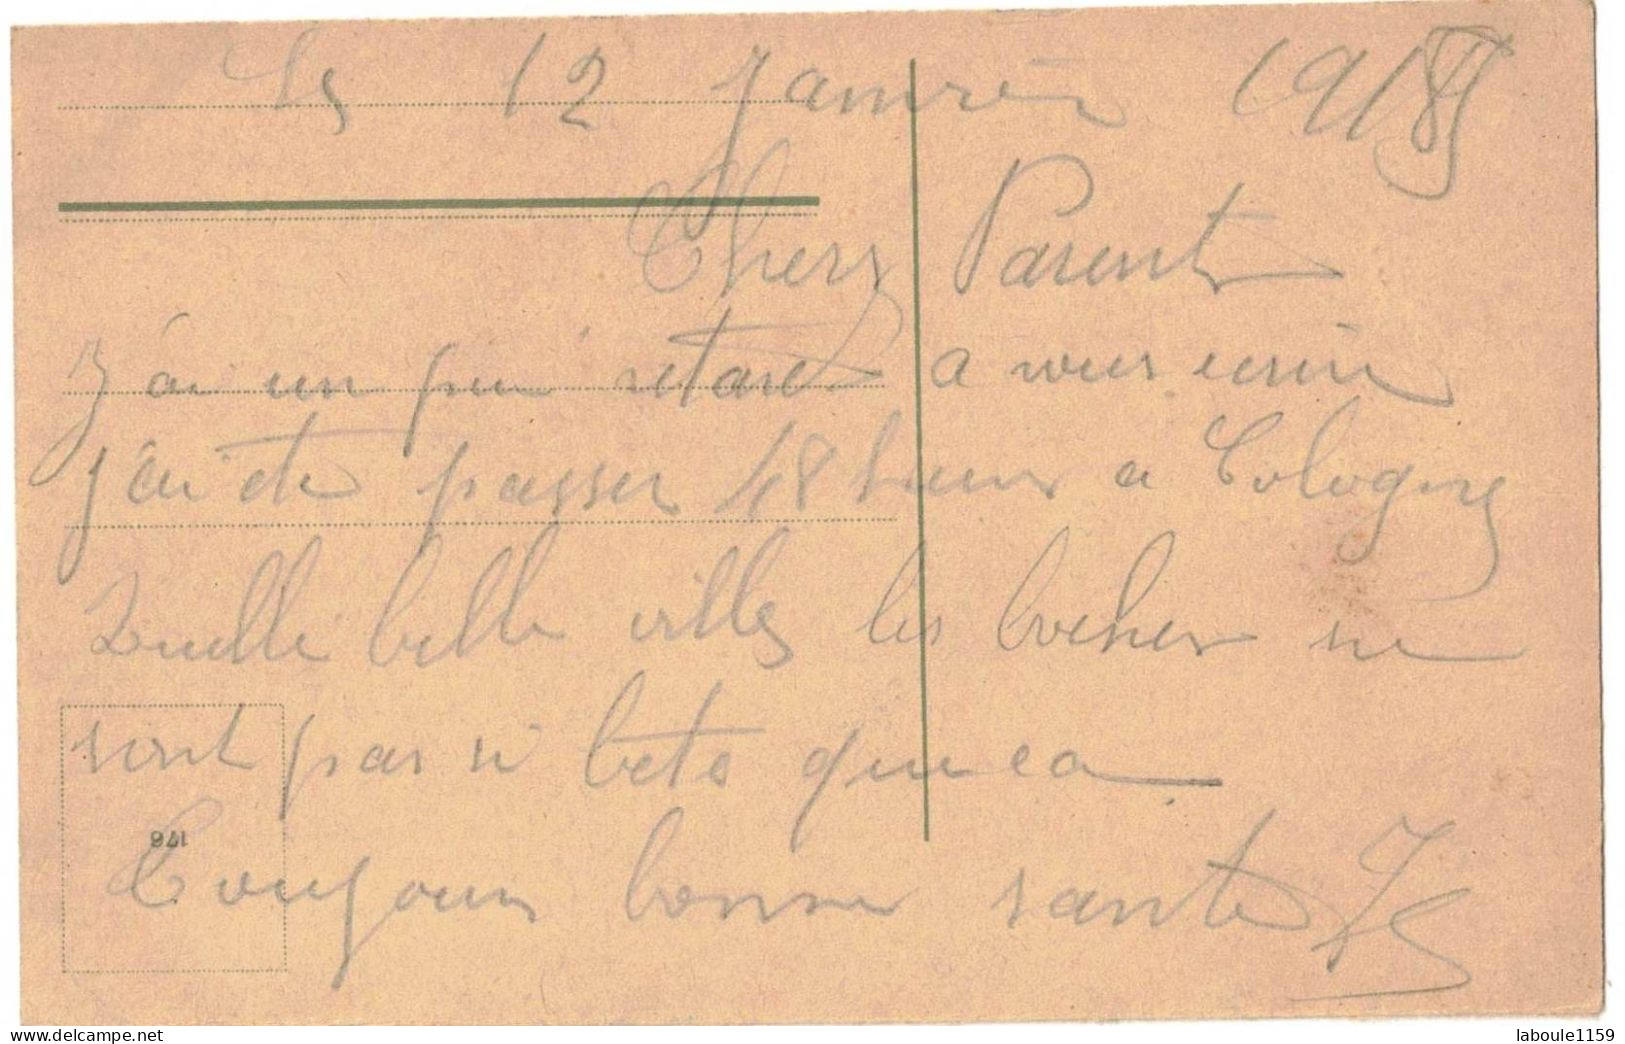 Le 12 Janvier 1918
Chers Parents
J'ai un peu retard a vous ecrire
j'ai ete passer 48 heures a Cologne
Quelle belle ville les boches ne
sont pas si bete que ca
176
Toujours bonne sante
laboule1159